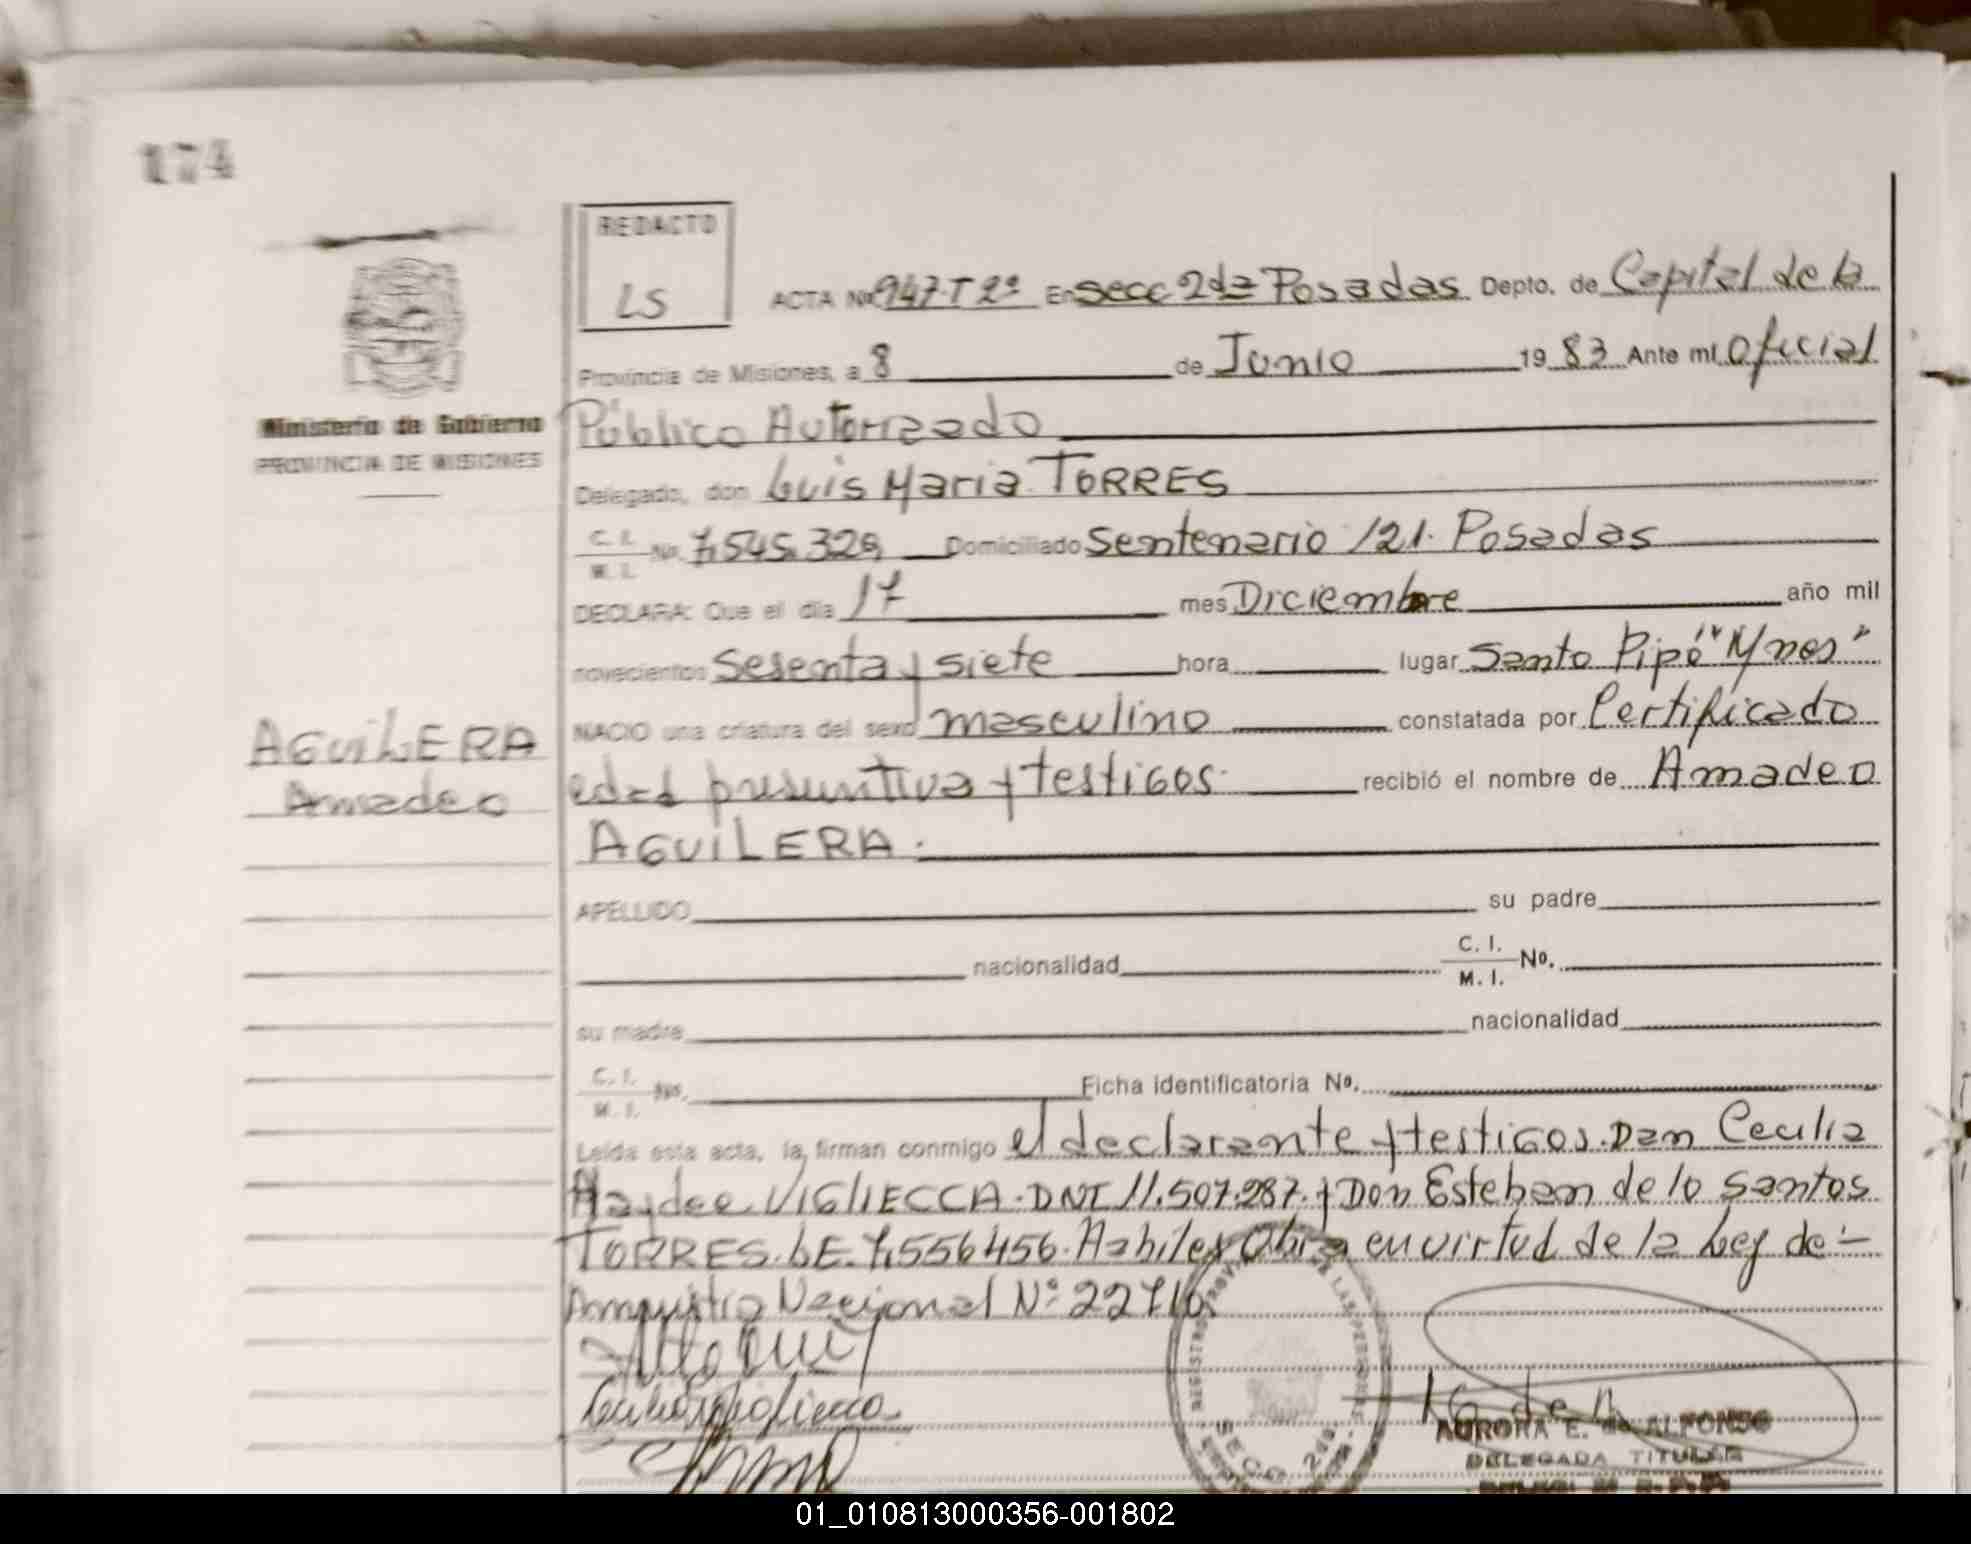 174
REDACTO
LS
ACTA Nº 947-T 2º En Secc 2da Posadas Depto. de Capital de la
Provincia de Misiones, a 8 de Junio 1983 Ante mí Oficial
Ministerio de Gobierno
PROVINCIA DE MISIONES
Público Autorizado
Delegado, don Luis Maria TORRES
C. I.
M. I. No. 7.545.329 Domiciliado Sentenario 121. Posadas
DECLARA: Que el día 17 mes Diciembre año mil
novecientos Sesenta y siete hora lugar Santo Pipó "Mnes"
NACIO una criatura del sexo masculino constatada por Certificado
AGUILERA
Amadeo
edad presuntiva y testigos. recibió el nombre de Amadeo
AGUILERA.
APELLIDO su padre
nacionalidad C. I.
M. I. Nº.
su madre nacionalidad
C. I.
M. I. No. Ficha identificatoria Nº.
Leída esta acta, la firman conmigo el declarante y testigos. Dan Cecilia
Haydee VIGLIECCA. DNI 11.507.287. y Don Esteban de lo Santos
TORRES. LE. 7.556456. Habiles en virtud de la Ley de :-
Amnistia Nacional Nº 22710
REGISTRO PROV. DE LAS PERSONAS
SECC. 2da.
AURORA E. de ALFONSO
DELEGADA TITULAR
01_010813000356-001802